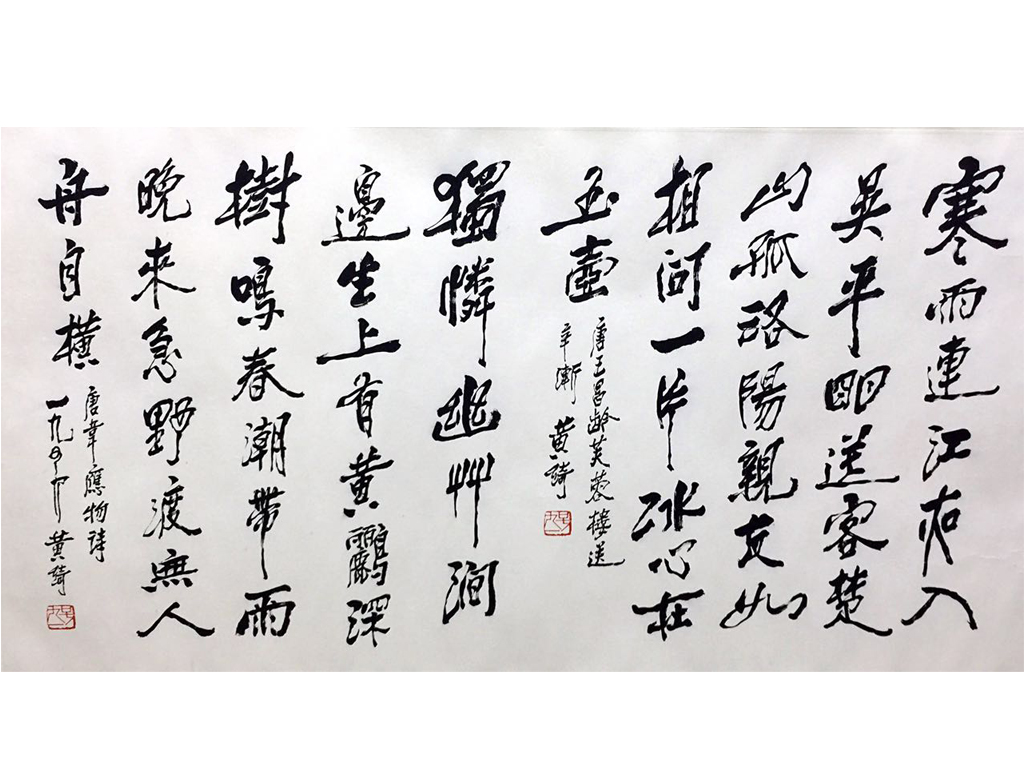 寒雨連江夜入
吳平明送客楚
山孤洛陽親友如
相问一片冰心在
玉壺
唐王昌齡芙蓉樓送
辛漸 黄綺
獨憐幽艸澗
邊生上有黄鸝深
樹鳴春潮帶雨
晚來急野渡無人
舟自橫
唐韋應物詩
一九 黄綺